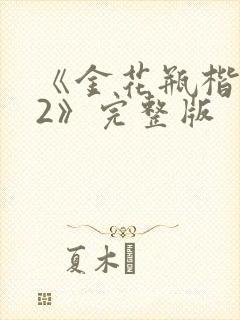 《金花瓶楷
2》完整版
夏木